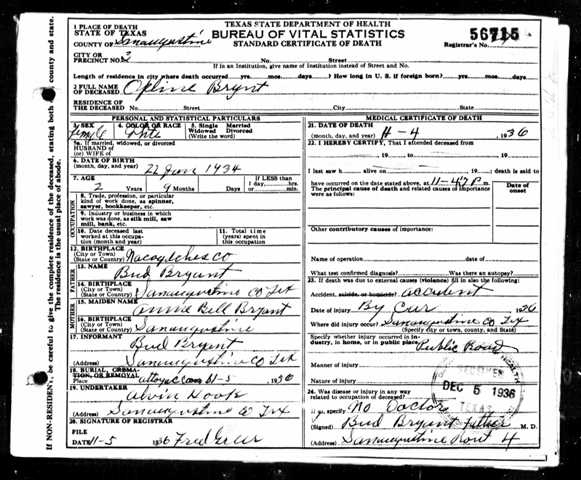 TEXAS STATE DEPARTMENT OF HEALTH
BUREAU OF VITAL STATISTICS
STANDARD CERTIFICATE OF DEATH
56715
Registrar's No.
1 PLACE OF DEATH
STATE OF TEXAS
COUNTY OF
CITY OR
PRECINCT NO. 2 No. Street
If in an Institution, give name of Institution instead of Street and No.
Length of residence in city where death occurred yrs. mos. days. How long in U. S. if foreign born? yrs. mos. days
2 FULL NAME
OF DECEASED Bryant
RESIDENCE OF
THE DECEASED No. Street City State
PERSONAL AND STATISTICAL PARTICULARS
3. SEX 4. COLOR OR RACE 5. Single Married
Widowed Divorced
(Write the word)
5a. If married, widowed, or divorced
HUSBAND OF
(or) WIFE OF
6. DATE OF BIRTH
(month, day, and year) 22 June 1934
7. AGE If LESS than
1 day, hrs.
2 Years 9 Months Days or min.
OCCUPATION
8. Trade, profession, or particular
kind of work done, as spinner,
sawyer, bookkeeper, etc.
9. Industry or business in which
work was done, as silk mill, saw
mill, bank, etc.
10. Date deceased last
worked at this occupa-
tion (month and year)
11. Total time
(years) spent in
this occupation
12. BIRTHPLACE
(City or Town)
(State or Country) Co
FATHER
13. NAME
Bud Bryant
14. BIRTHPLACE
(City or Town)
(State or Country) Co Tex
MOTHER
15. MAIDEN NAME
Annie Bell Bryant
16. BIRTHPLACE
(City or Town)
(State or Country)
17. INFORMANT
Bud Bryant
(Address) Co Tex
18. BURIAL, CREMA-
TION, OR REMOVAL
Place 11-5 1936
19. UNDERTAKER
(Address) Co Tex
20. SIGNATURE OF REGISTRAR
FILE
DATE 11-5 1936 Fred
MEDICAL CERTIFICATE OF DEATH
21. DATE OF DEATH
(month, day, and year) 11-4 1936
22. I HEREBY CERTIFY, That I attended deceased from
19 to 19
I last saw h alive on 19 ; death is said to
have occurred on the date stated above, at P m.
The principal cause of death and related causes of importance
were as follows:
Date of
onset
Other contributory causes of importance:
Name of operation date of
What test confirmed diagnosis? Was there an autopsy?
23. If death was due to external causes (violence) fill in also the following:
Accident, suicide, or homicide? accident
Date of injury By Car 1936
Where did injury occur? Co Tex
(Specify city or town, county, and State)
Specify whether injury occurred in in-
dustry, in home, or in public place. Public Road
Manner of injury
Nature of injury
24. Was disease or injury in any way
related to occupation of deceased?
If so, specify No Doctor
(Signed) Bud Bryant father M. D.
(Address) Rout 4
DEC 5 1936
TEXAS
If NON-RESIDENT, be careful to give the complete residence of the deceased, stating both county and state.
The residence is the usual place of abode.